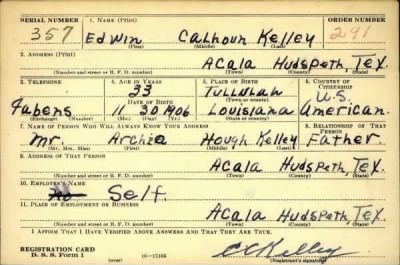 SERIAL NUMBER 1. NAME (Print) ORDER NUMBER
357 Edwin Calhoun Kelley 291
(First) (Middle) (Last)
2. ADDRESS (Print)
Acala Hudspeth, Tex.
(Number and street or R. F. D. number) (Town) (County) (State)
3. TELEPHONE 4. AGE IN YEARS 5. PLACE OF BIRTH 6. COUNTRY OF CITIZENSHIP
33 Tullulah U.S.
DATE OF BIRTH (Town or county)
Fabens 11 30 1906 Louisiana American.
(Exchange) (Number) (Mo.) (Day) (Yr.) (State or country)
7. NAME OF PERSON WHO WILL ALWAYS KNOW YOUR ADDRESS 8. RELATIONSHIP OF THAT PERSON
Mr. Archie Hough Kelley Father.
(Mr., Mrs., Miss) (First) (Middle) (Last)
9. ADDRESS OF THAT PERSON
Acala Hudspeth, Tex.
(Number and street or R. F. D. number) (Town) (County) (State)
10. EMPLOYER'S NAME
Self.
11. PLACE OF EMPLOYMENT OR BUSINESS
Acala Hudspeth, Tex.
(Number and street or R. F. D. number) (Town) (County) (State)
I AFFIRM THAT I HAVE VERIFIED ABOVE ANSWERS AND THAT THEY ARE TRUE.
REGISTRATION CARD
D. S. S. Form 1 16—17105 EC Kelley